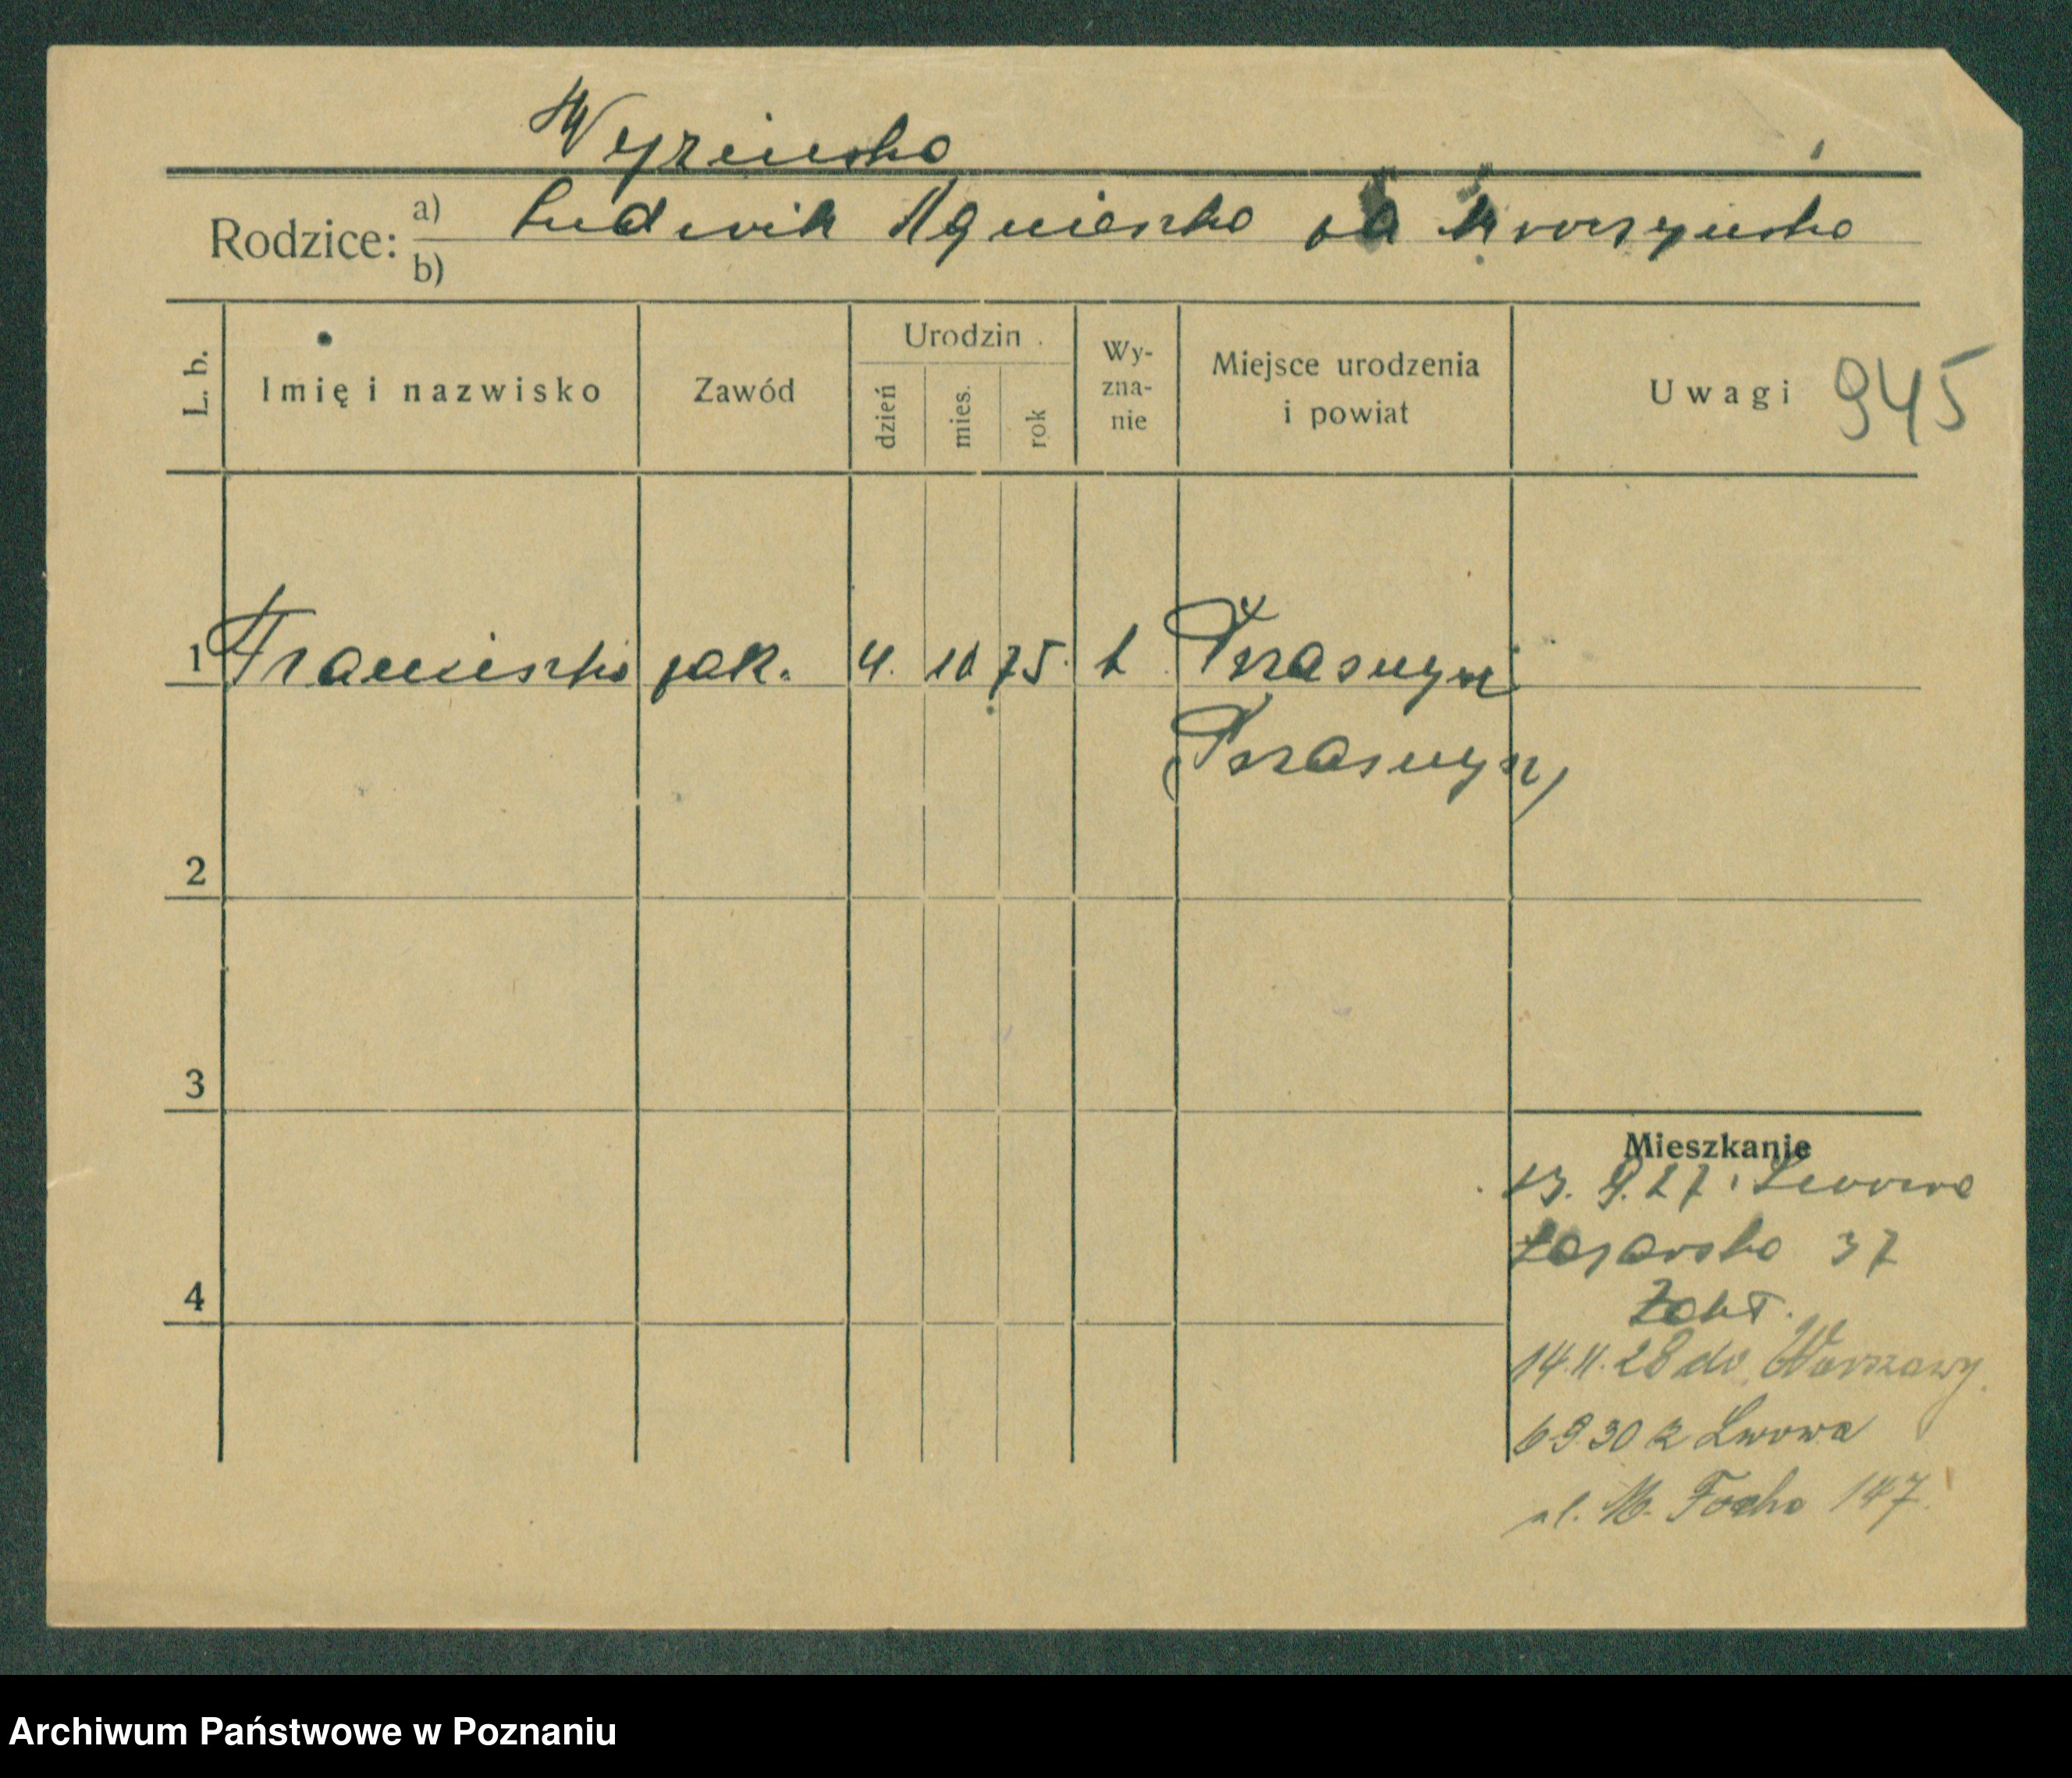 Wyrzinska
Rodzice: a) Ludwik Agnieszka
b)
L. b.
Imię i nazwisko
Zawód
Urodzin
dzień
mies.
rok
Wy-
zna-
nie
Miejsce urodzenia
i powiat
Uwagi 945
1 Franciszka jak. 4. 10 75. k Przasnysz
(Przasnysz)
2
3
Mieszkanie
13. 9. 27. Lwowa
Łazarska 37
Zakł.
4
14.11.28 do Warszawy.
6 9 30 z Lwowa
ul. M. Focha 147.
Archiwum Państwowe w Poznaniu